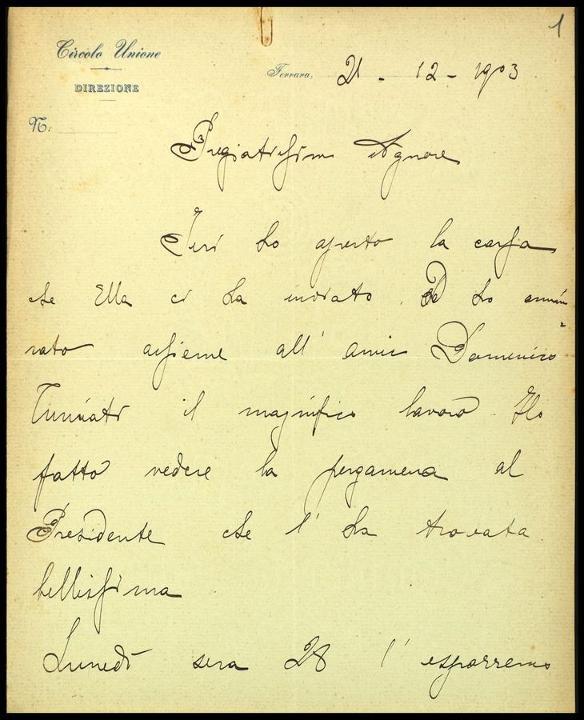 1
Circolo Unione
DIREZIONE
Ferrara, 21 - 12 - 1903
N.
Pregiatissimo Signore
Ieri ho aperto la cassa
che Ella ci ha inviato. Ed ho ammi=
rato assieme all' amico Domenico
Tumiati il magnifico lavoro. Ho
fatto vedere la pergamena al
Presidente che l' ha trovata
bellissima
Lunedì sera 28 l' esporremo